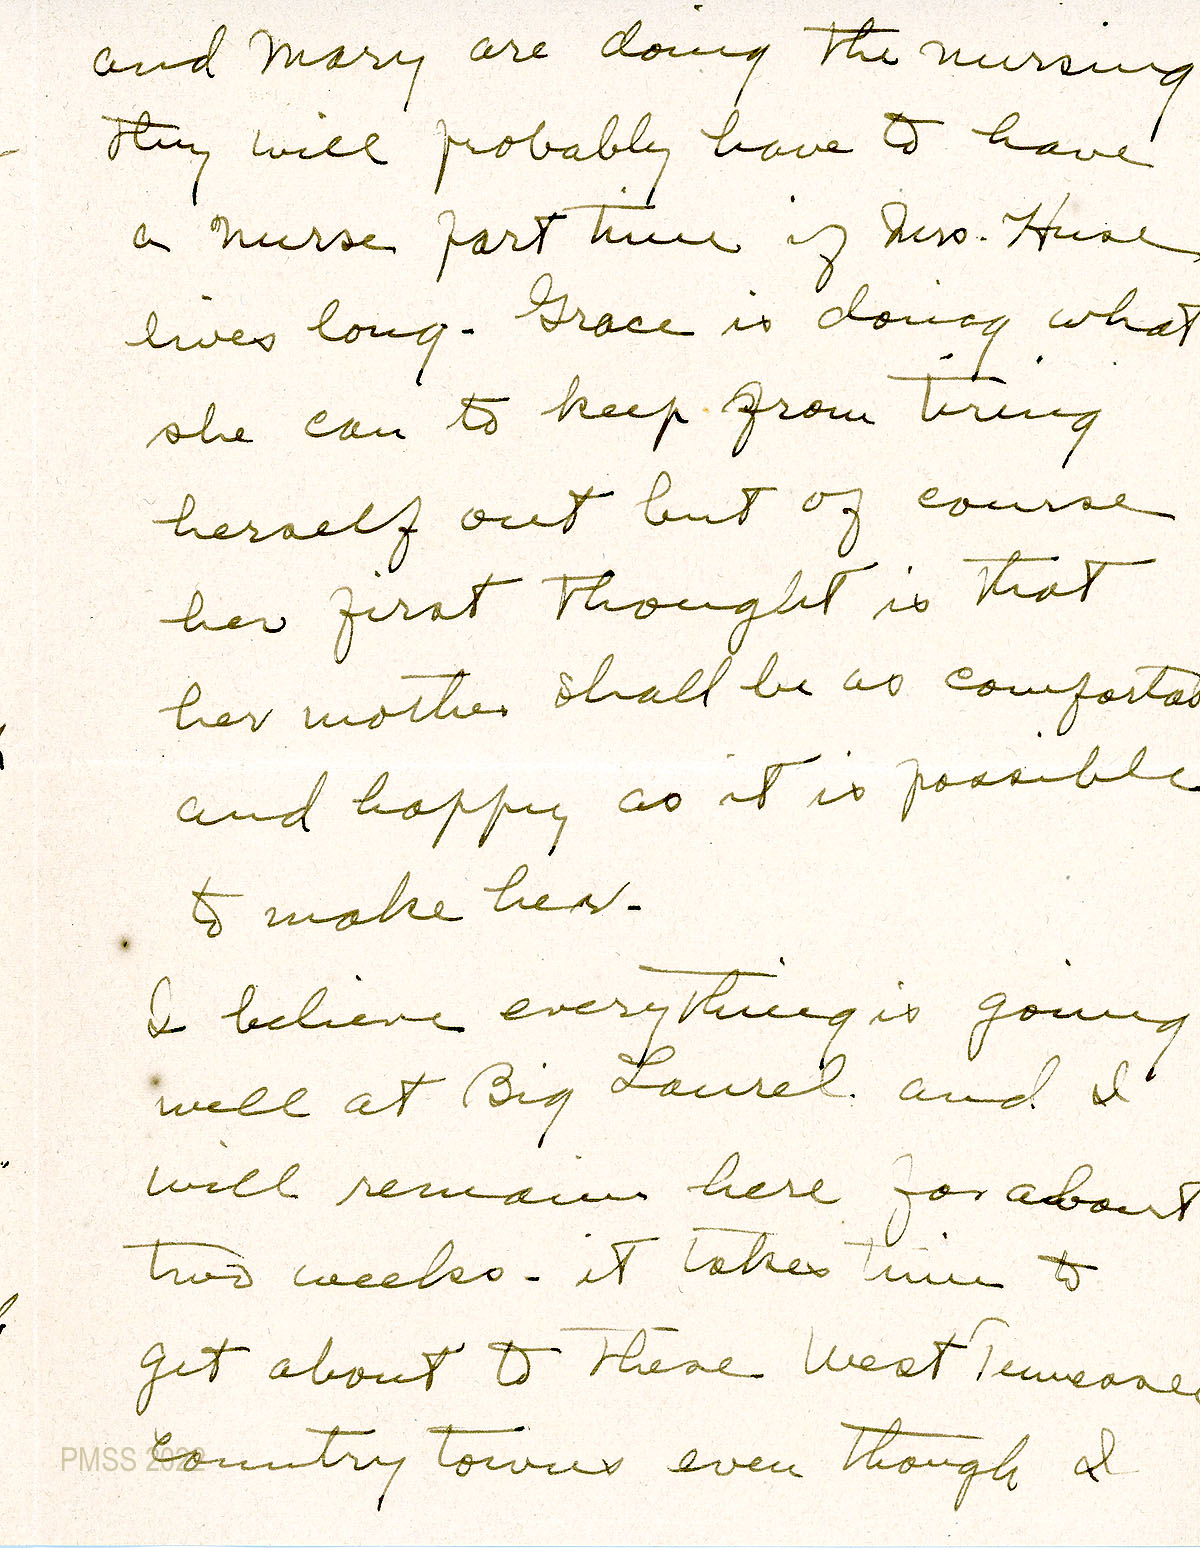 and Mary are doing the nursing
they will probably have to have
a nurse part time if Mrs. Huse
lives long - Grace is doing what
she can to keep from tiring
herself out but of course
her first thought is that
her mother shall be as comfortab
and happy as it is possible
to make her -
I believe everything is going
well at Big Laurel and I
will remain here for about
two weeks - it takes time to
get about to these West Tennessee
Country towns even though I
PMSS 2022